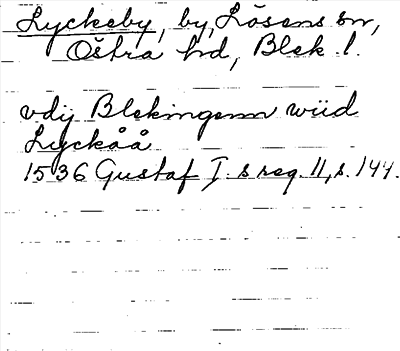 Lyckeby, by, Lösens sn,
Östra hd, Blek. l.
vdij Blekingenn wiid
Lyckåå
1536 Gustaf I:s reg. 11, s. 144.